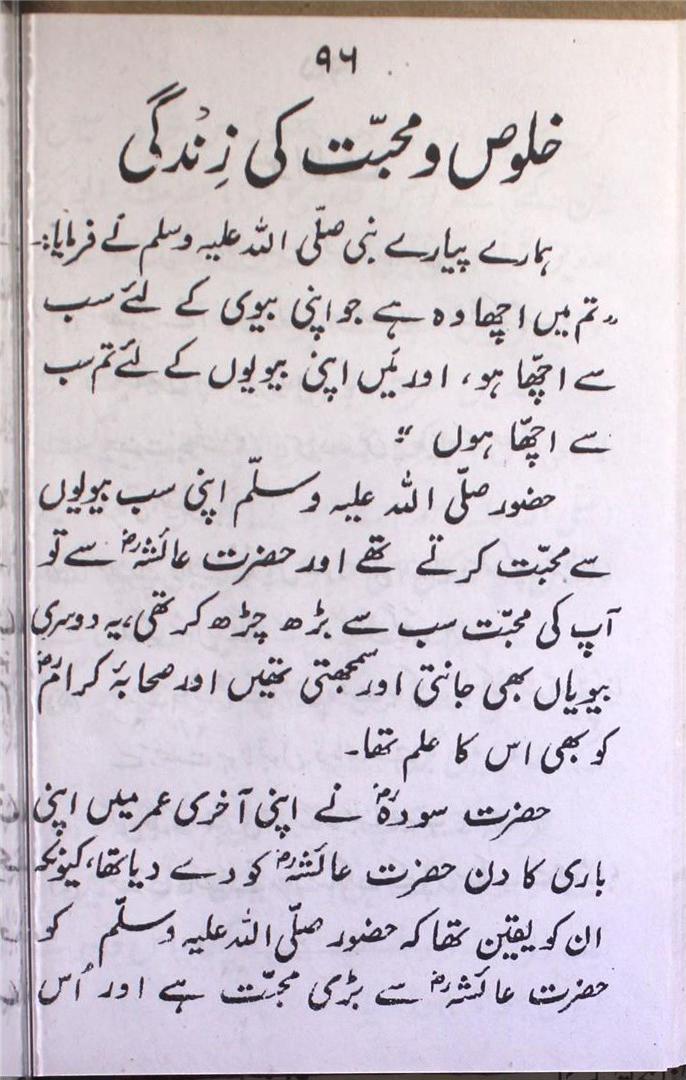 ۹۶
خلوص و محبّت کی زِندگی
ہمارے پیارے نبی صلّی اللہ علیہ وسلم نے فرمایا:۔
”تم میں اچھا وہ ہے جو اپنی بیوی کے لئے سب
سے اچھّا ہو، اور مَیں اپنی بیویوں کے لئے تم سب
سے اچھّا ہوں “
حضور صلّی اللہ علیہ وسلّم اپنی سب بیویوں
سے محبّت کرتے تھے اور حضرت عائشہؓ سے تو
آپ کی محبّت سب سے بڑھ چڑھ کر تھی، یہ دوسری
بیویاں بھی جانتی اور سمجھتی تھیں اور صحابۂ کرامؓ
کو بھی اس کا علم تھا۔
حضرت سودہؓ نے اپنی آخری عمر میں اپنی
باری کا دن حضرت عائشہؓ کو دے دیا تھا، کیونکہ
ان کو یقین تھا کہ حضور صلّی اللہ علیہ وسلّم کو
حضرت عائشہؓ سے بڑی محبّت ہے اور اُس